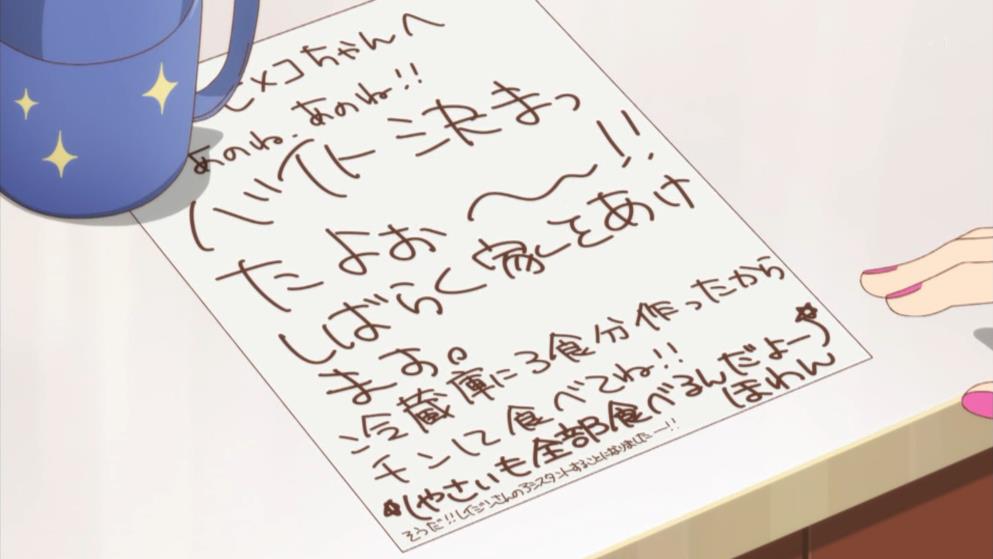 ヒメコちゃんへ
あのね、あのね!!
バイト決まっ
たよぉ〜!!
しばらく家をあけ
ます。
冷蔵庫に3食分作ったから
チンして食べてね!!
やさいも全部食べるんだよー
ほわん
そうだ!!レイジンさんのアシスタントすることになりましたー!!